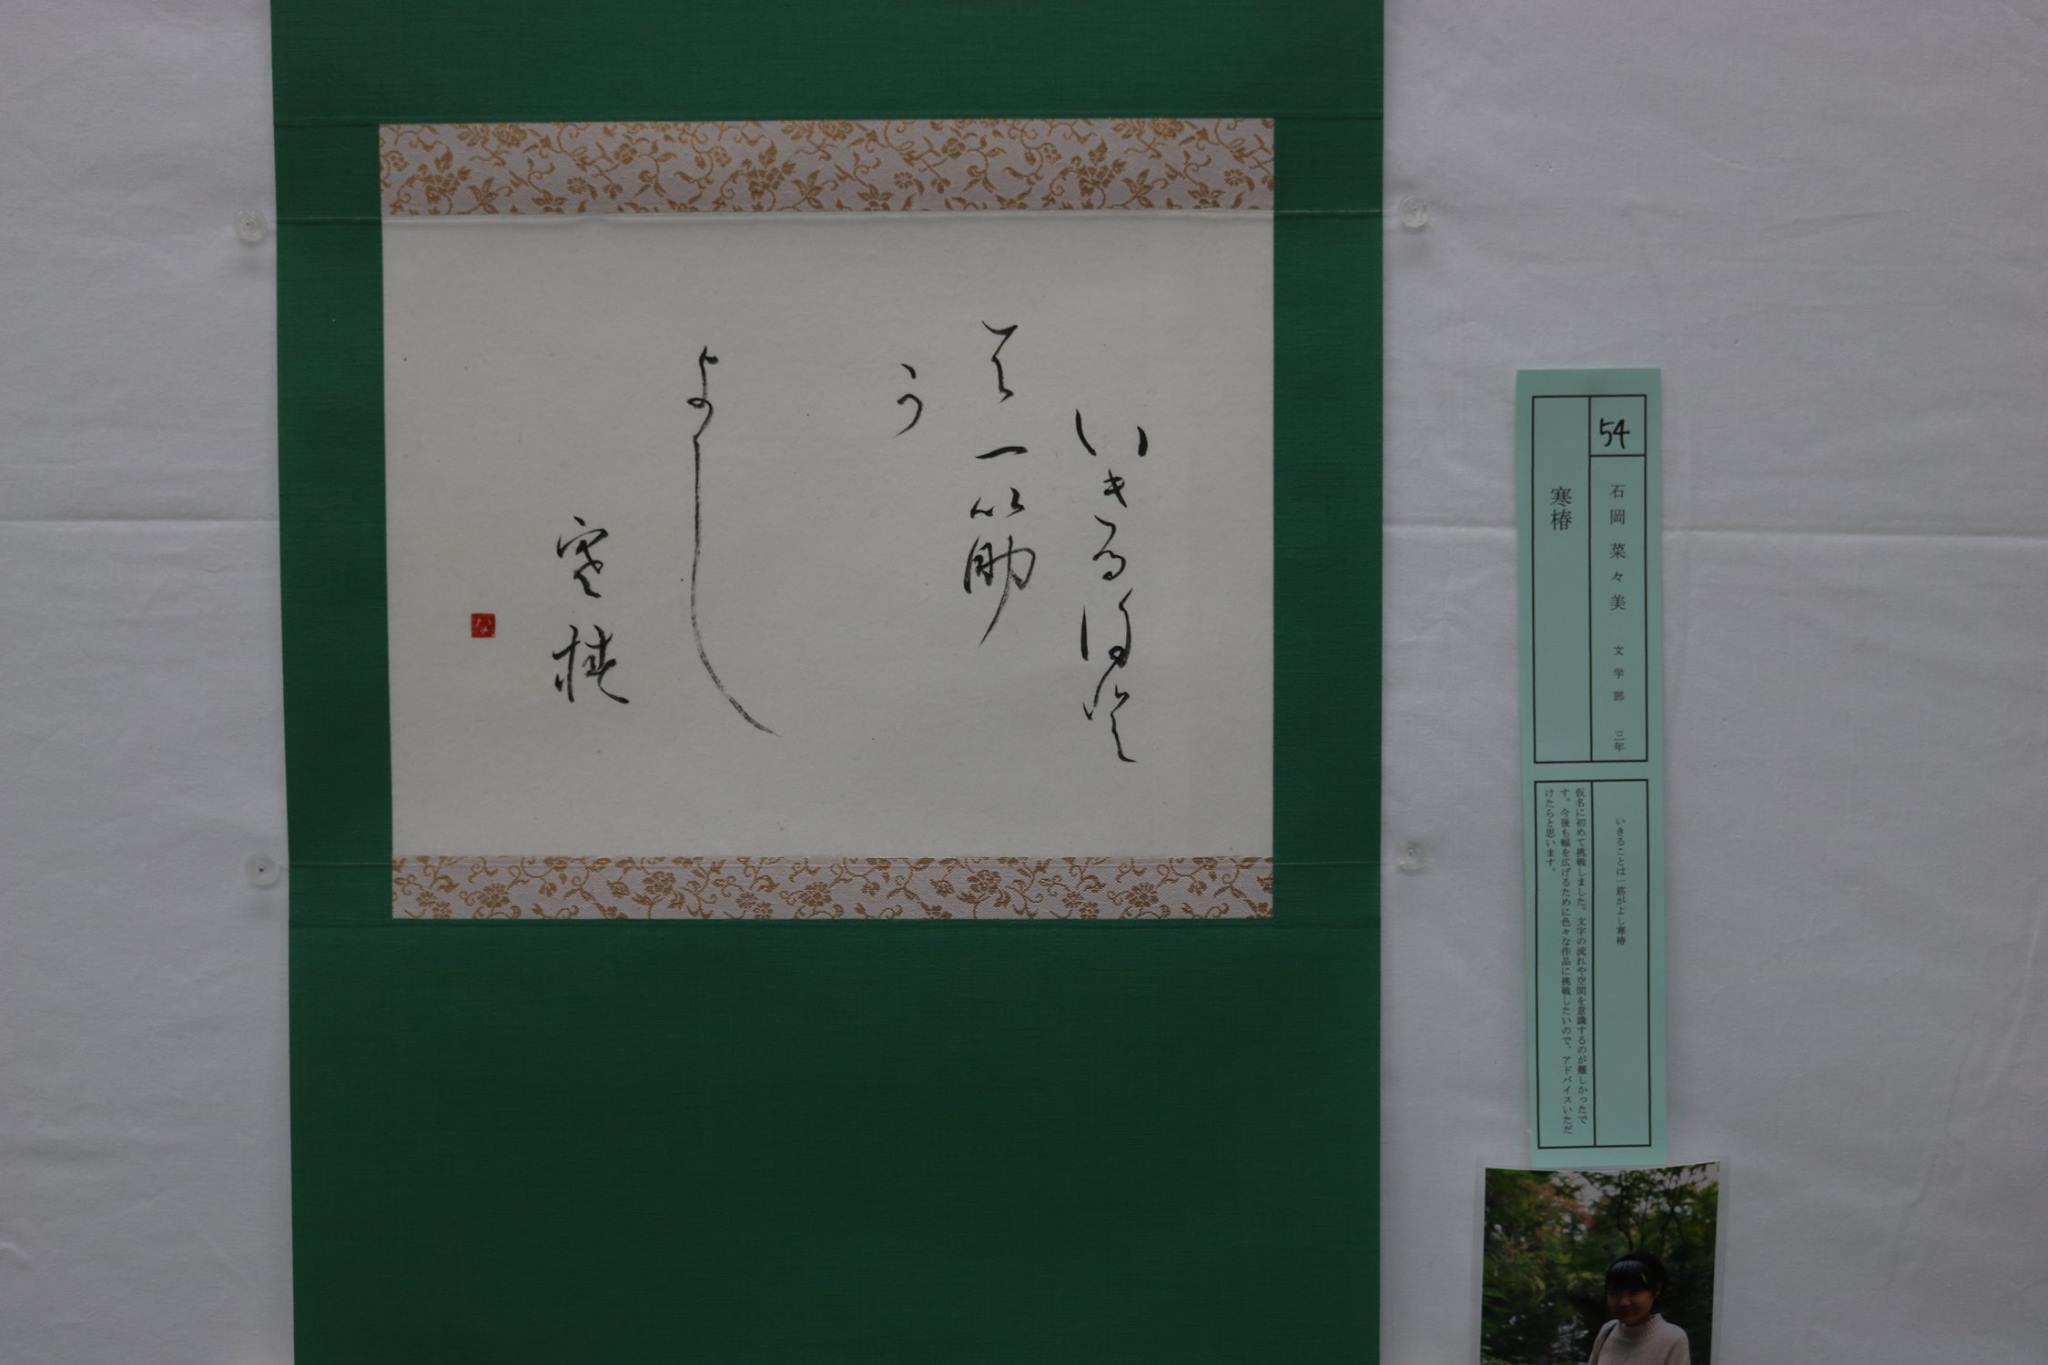 いきること
は一筋
う
よし
寒椿
な
54
石岡菜々美 文学部 三年
寒椿
いきることは一筋がよし寒椿
仮名に初めて挑戦しました。文字の流れや空間を意識するのが難しかったで
す。今後も幅を広げるために色々な作品に挑戦したいので、アドバイスいただ
けたらと思います。